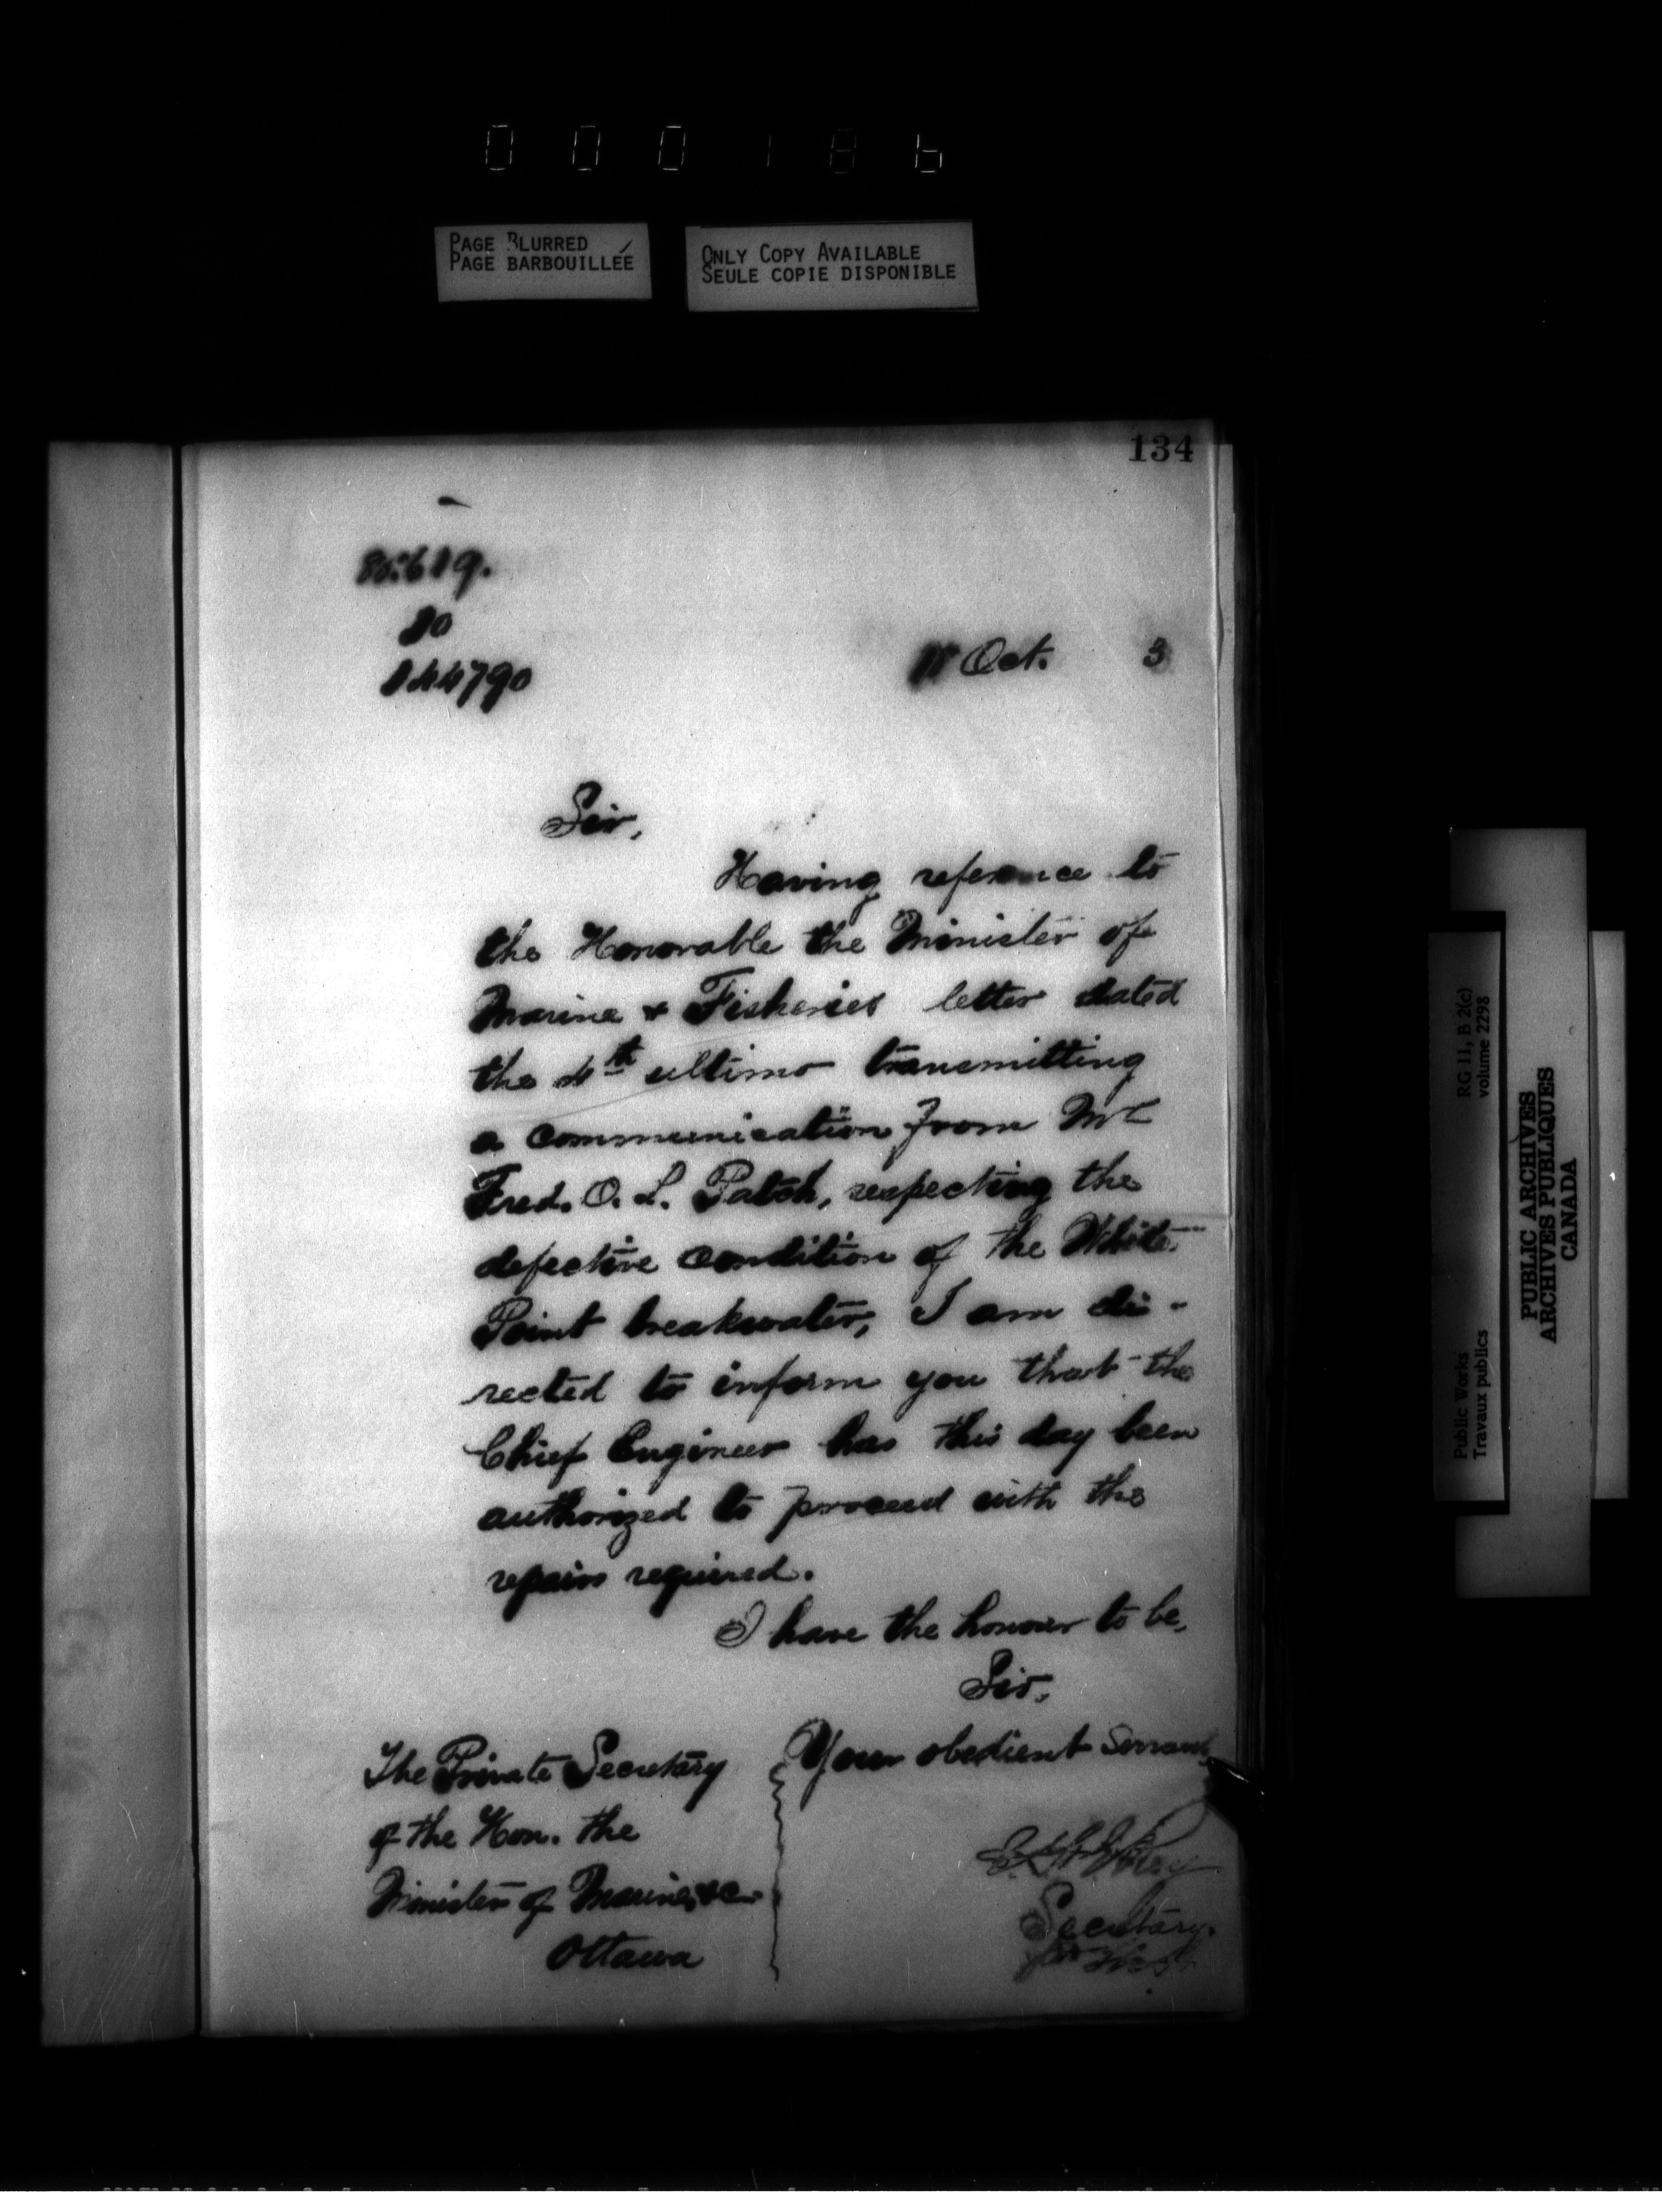 000186
PAGE BLURRED
PAGE BARBOUILLÉE
ONLY COPY AVAILABLE
SEULE COPIE DISPONIBLE
134
10
144790
11 Oct. 3
Sir,
Having reference to
the Honorable the Minister of
Marine & Fisheries letter dated
the 4th ultimo transmitting
a communication from Mr
Fred. O. L. Patch, respecting the
defective condition of the White
Point breakwater, I am di-
rected to inform you that the
Chief Engineer has this day been
authorized to proceed with the
repairs required.
I have the honour to be,
Sir,
Your obedient Servant
The Private Secretary
of the Hon. the
Minister of Marine, &c
Ottawa
Secretary.
Public Works
Travaux publics
RG 11, B 2(c)
volume 2298
PUBLIC ARCHIVES
ARCHIVES PUBLIQUES
CANADA